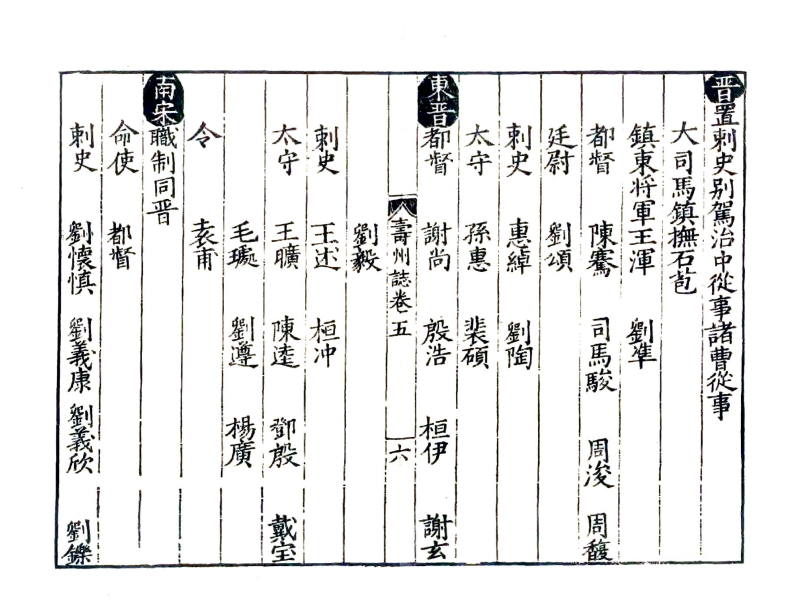 晋置刺史别駕治中從事諸曹從事
大司馬鎮撫石苞
鎮東將軍王渾 劉準
都督 陳騫 司馬駿 周浚 周馥
廷尉 劉頌
刺史 惠綽 劉陶
太守 孫惠 裴碩
東晋都督 謝尚 殷浩 桓伊 謝玄
壽州誌卷五 六
劉毅
刺史 王述 桓冲
太守 王曠 陳逵 鄧殷 戴宝
毛璩 劉遵 楊廣
令 袁甫
南宋職制同晋
命使 都督
刺史 劉懷慎 劉義康 劉義欣 劉鑠